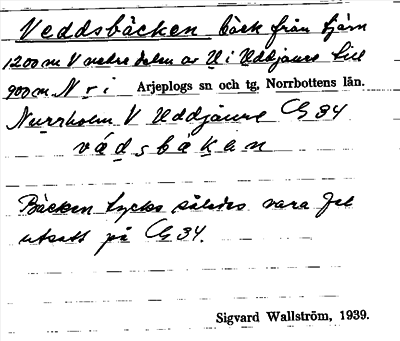 Veddsbäcken bäck från tjärn
1200 m V nedre delen av U i Uddjaure till
900 m N r i Arjeplogs sn och tg, Norrbottens län.
Nurrholm V Uddjaure G 34
vádsbäkən
Bäcken tycks således vara fel
utsatt på G 34.
Sigvard Wallström, 1939.